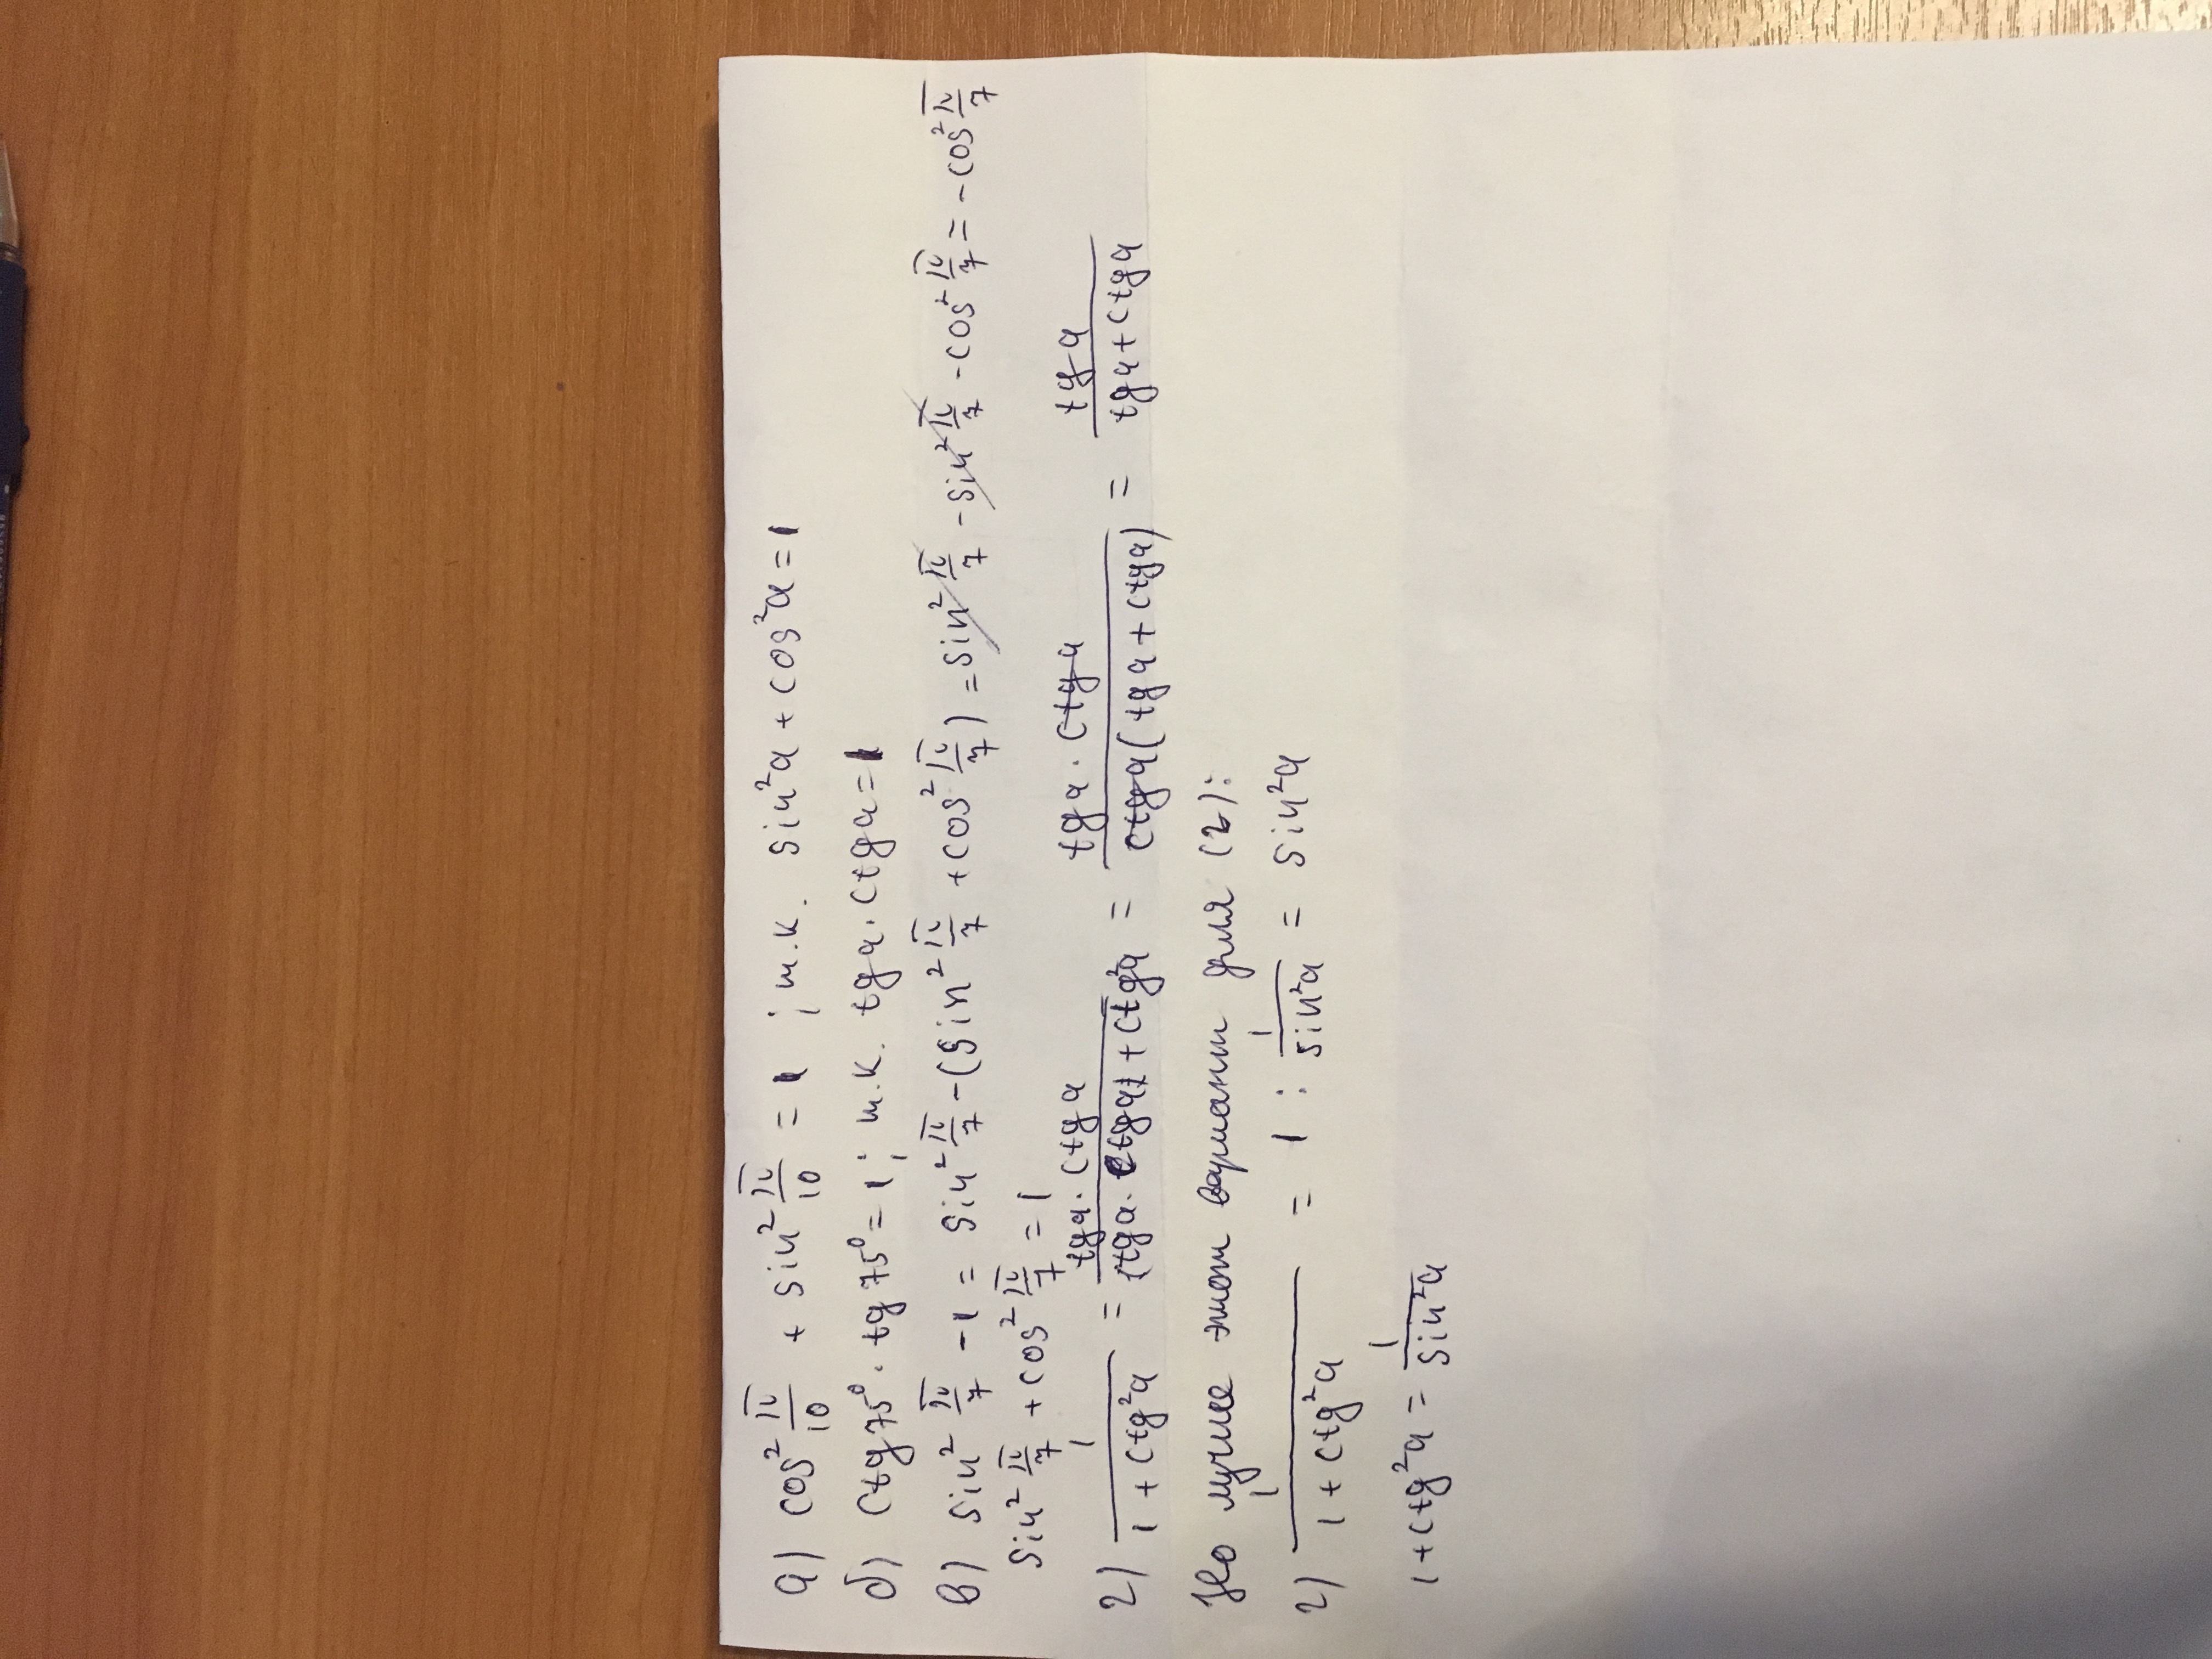 а) cos² π/10 + sin² π/10 = 1 ; т.к. sin²α + cos²α = 1
б) ctg75° · tg75° = 1 ; т.к. tgα · ctgα = 1
в) sin² π/7 - 1 = sin² π/7 - (sin² π/7 + cos² π/7) = sin² π/7 - sin² π/7 - cos² π/7 = - cos² π/7
sin² π/7 + cos² π/7 = 1
г) 1/(1 + ctg²α) = (tgα · ctgα)/(tgα · ctgα + ctg²α) = (tgα · ctgα)/(ctgα(tgα + ctgα)) = tgα/(tgα + ctgα)
Но лучше этот вариант для (г):
г) 1/(1 + ctg²α) = 1 : 1/sin²α = sin²α
1 + ctg²α = 1/sin²α